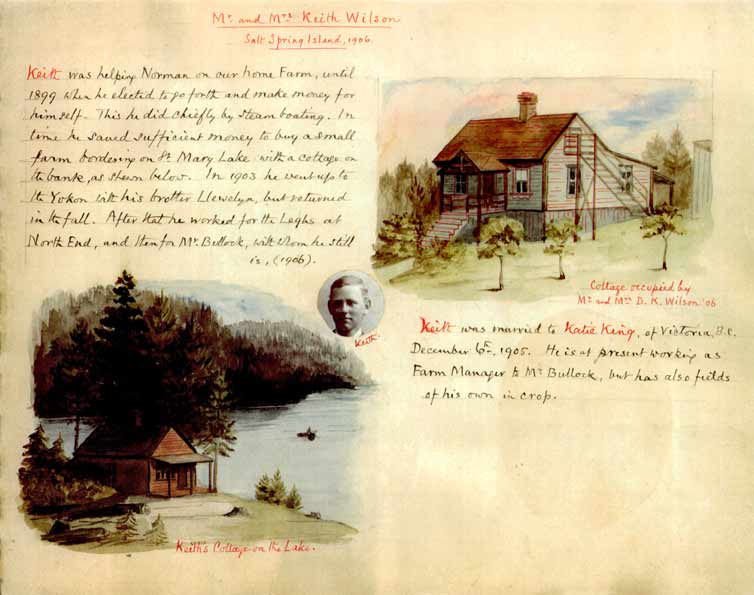 Mr. and Mrs. Keith Wilson
Salt Spring Island, 1906.
Keith was helping Norman on our home Farm, until
1899 when he elected to go forth and make money for
himself. This he did chiefly by steam boating. In
time he saved sufficient money to buy a small
farm bordering on St Mary Lake, with a cottage on
the bank, as shewn below. In 1903 he went up to
the Yokon with his brother Llewelyn, but returned
in the fall. After that he worked for the Leghs at
North End, and then for Mr. Bullock, with whom he still
is, (1906).
Cottage occupied by
Mr. and Mrs. D. K. Wilson '06
Keith.
Keith was married to Katie King, of Victoria, B.C.
December 6th, 1905. He is at present working as
Farm Manager to Mr. Bullock, but has also fields
of his own in crop.
Keith's Cottage on the Lake.